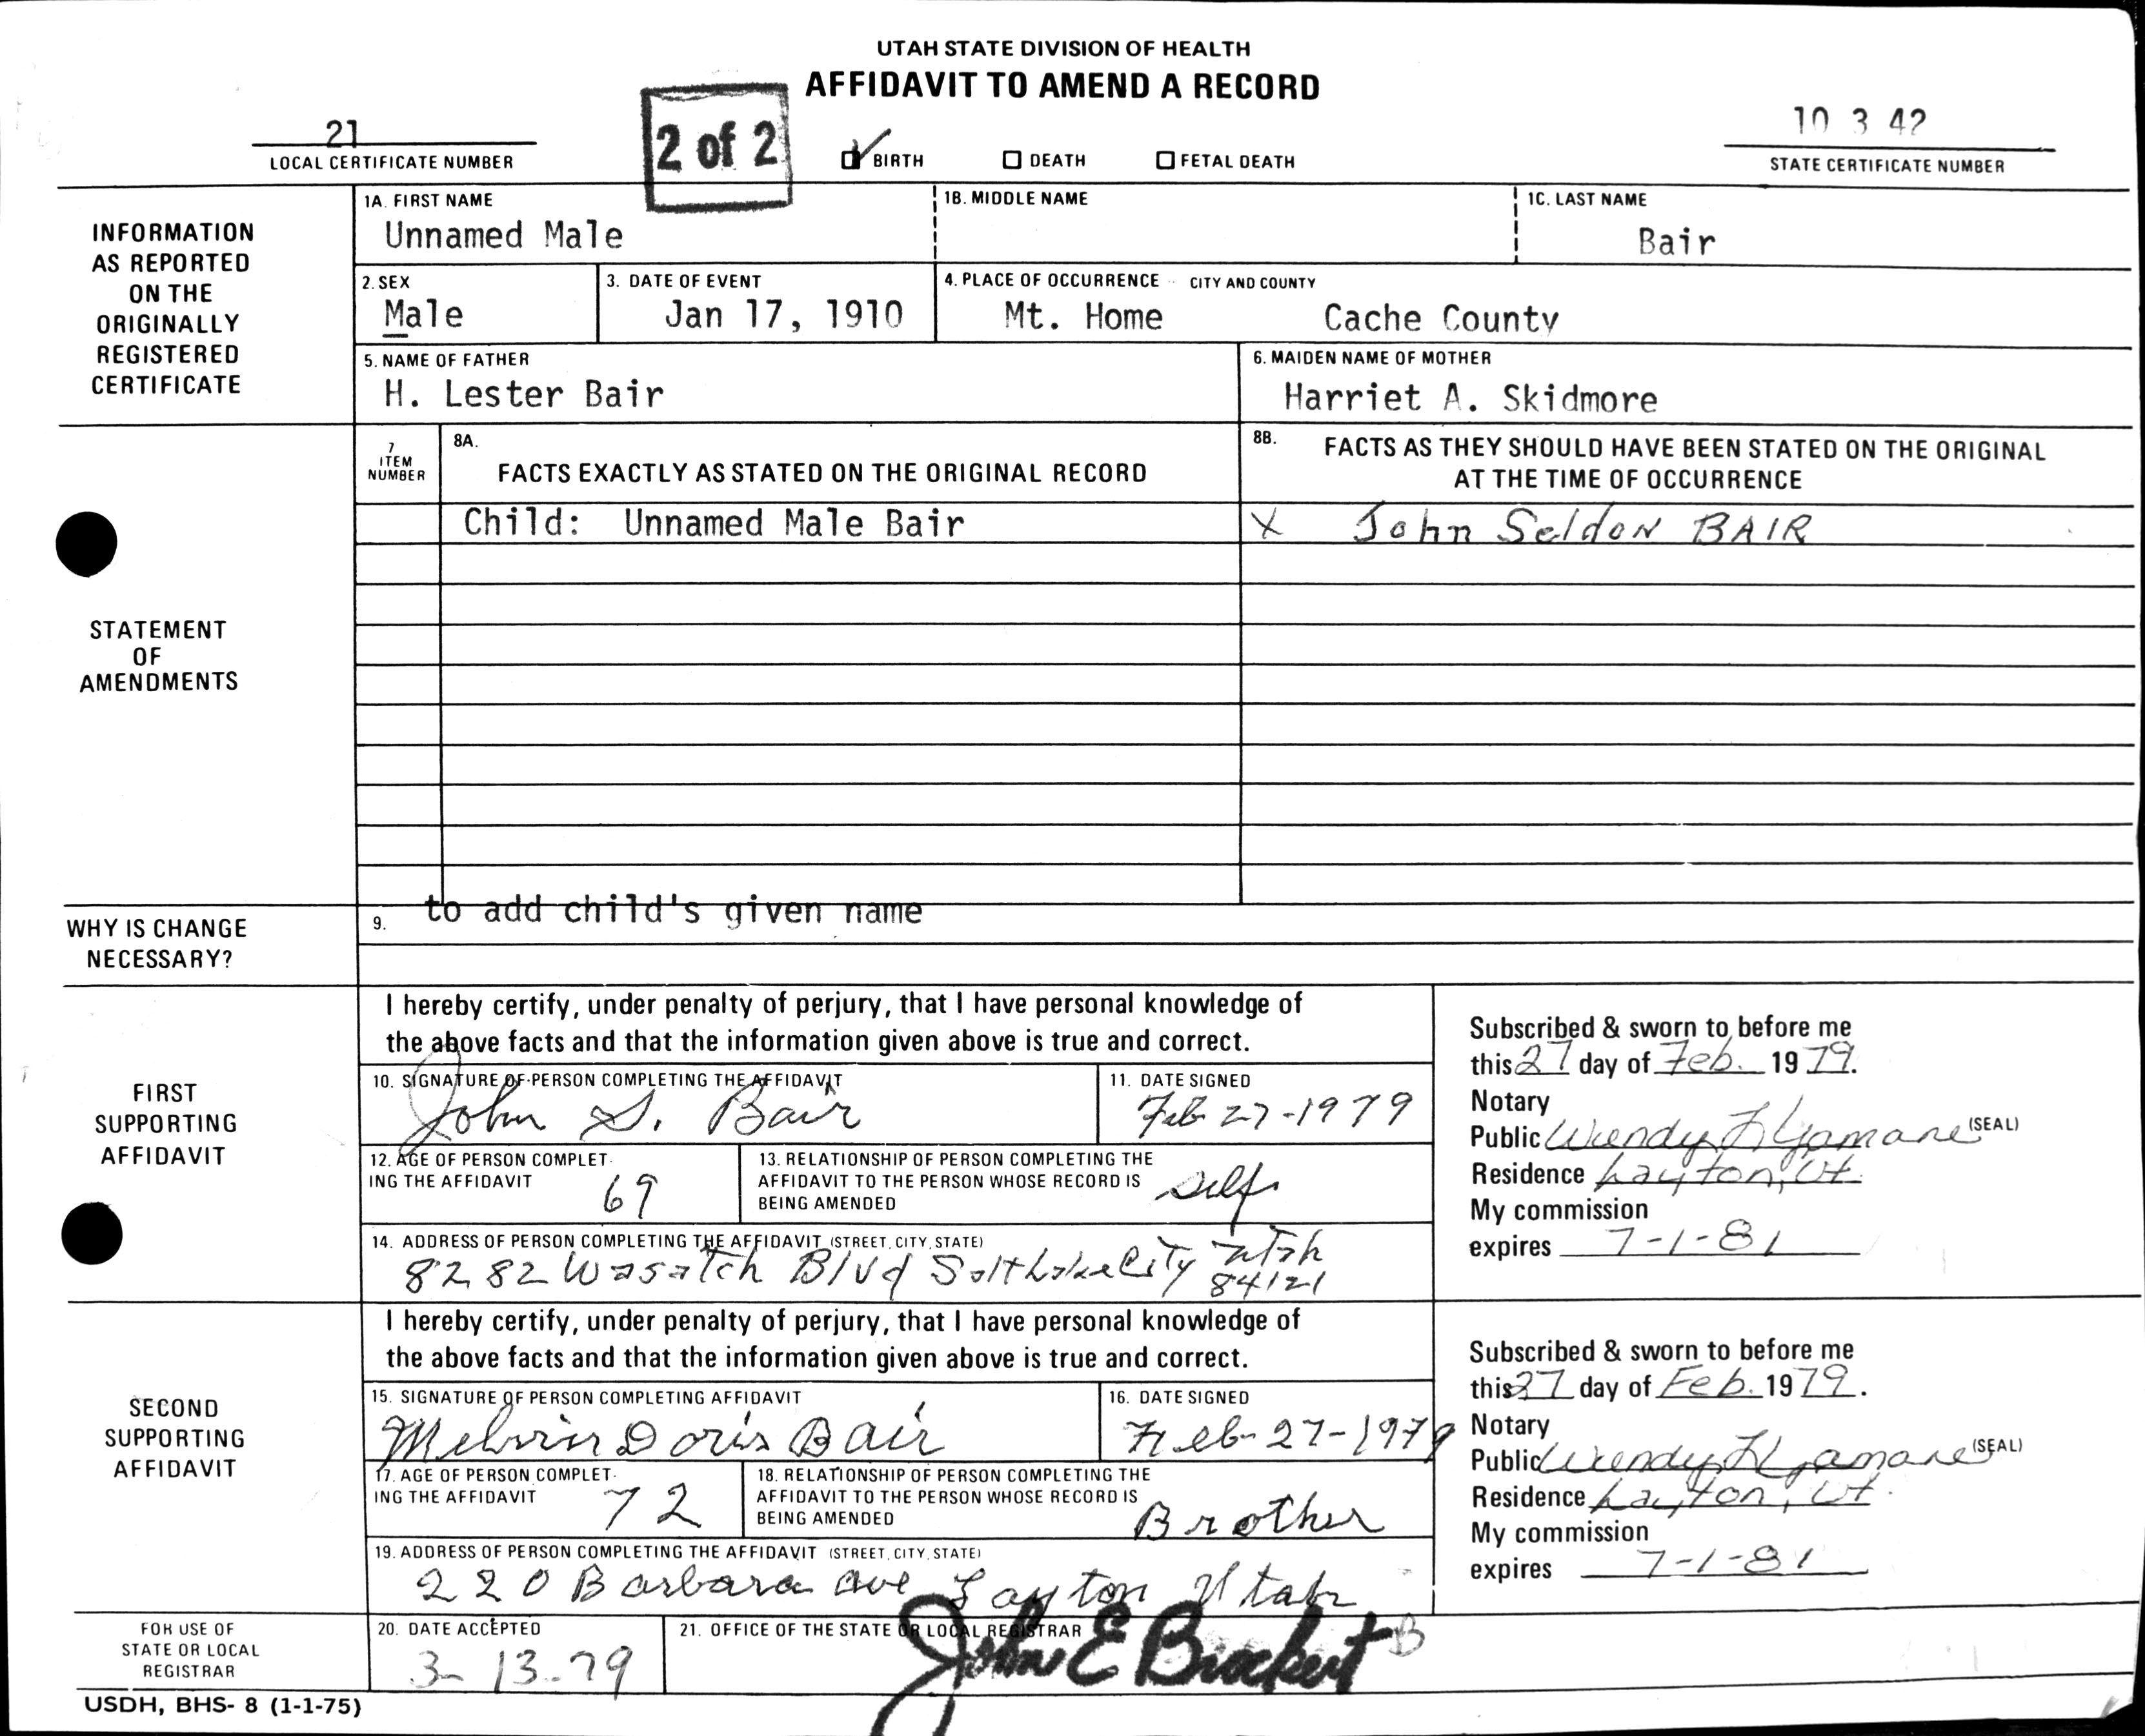 UTAH STATE DIVISION OF HEALTH
AFFIDAVIT TO AMEND A RECORD
21
LOCAL CERTIFICATE NUMBER
2 of 2
BIRTH
DEATH
FETAL DEATH
10 3 42
STATE CERTIFICATE NUMBER
INFORMATION
AS REPORTED
ON THE
ORIGINALLY
REGISTERED
CERTIFICATE
1A. FIRST NAME
Unnamed Male
1B. MIDDLE NAME
1C. LAST NAME
Bair
2. SEX
Male
3. DATE OF EVENT
Jan 17, 1910
4. PLACE OF OCCURRENCE CITY AND COUNTY
Mt. Home Cache County
5. NAME OF FATHER
H. Lester Bair
6. MAIDEN NAME OF MOTHER
Harriet A. Skidmore
STATEMENT
OF
AMENDMENTS
7
ITEM
NUMBER
8A.
FACTS EXACTLY AS STATED ON THE ORIGINAL RECORD
8B.
FACTS AS THEY SHOULD HAVE BEEN STATED ON THE ORIGINAL
AT THE TIME OF OCCURRENCE
Child: Unnamed Male Bair
X John Seldon BAIR
WHY IS CHANGE
NECESSARY?
9. to add child's given name
FIRST
SUPPORTING
AFFIDAVIT
I hereby certify, under penalty of perjury, that I have personal knowledge of
the above facts and that the information given above is true and correct.
10. SIGNATURE OF PERSON COMPLETING THE AFFIDAVIT
John S. Bair
11. DATE SIGNED
Feb 27-1979
12. AGE OF PERSON COMPLET-
ING THE AFFIDAVIT
69
13. RELATIONSHIP OF PERSON COMPLETING THE
AFFIDAVIT TO THE PERSON WHOSE RECORD IS
BEING AMENDED
self
14. ADDRESS OF PERSON COMPLETING THE AFFIDAVIT (STREET, CITY, STATE)
8282 Wasatch Blvd Salt Lake City Utah
84121
Subscribed & sworn to before me
this 27 day of Feb. 1979.
Notary
Public Wendy Yamane (SEAL)
Residence Layton, Ut.
My commission
expires 7-1-81
SECOND
SUPPORTING
AFFIDAVIT
I hereby certify, under penalty of perjury, that I have personal knowledge of
the above facts and that the information given above is true and correct.
15. SIGNATURE OF PERSON COMPLETING AFFIDAVIT
Melvin Doris Bair
16. DATE SIGNED
Feb-27-1979
17. AGE OF PERSON COMPLET-
ING THE AFFIDAVIT
72
18. RELATIONSHIP OF PERSON COMPLETING THE
AFFIDAVIT TO THE PERSON WHOSE RECORD IS
BEING AMENDED
Brother
19. ADDRESS OF PERSON COMPLETING THE AFFIDAVIT (STREET, CITY, STATE)
220 Barbara Ave Layton Utah
Subscribed & sworn to before me
this 27 day of Feb. 1979.
Notary
Public Wendy Yamane (SEAL)
Residence Layton, Ut.
My commission
expires 7-1-81
FOR USE OF
STATE OR LOCAL
REGISTRAR
20. DATE ACCEPTED
3-13-79
21. OFFICE OF THE STATE OR LOCAL REGISTRAR
John E Brockert B
USDH, BHS- 8 (1-1-75)